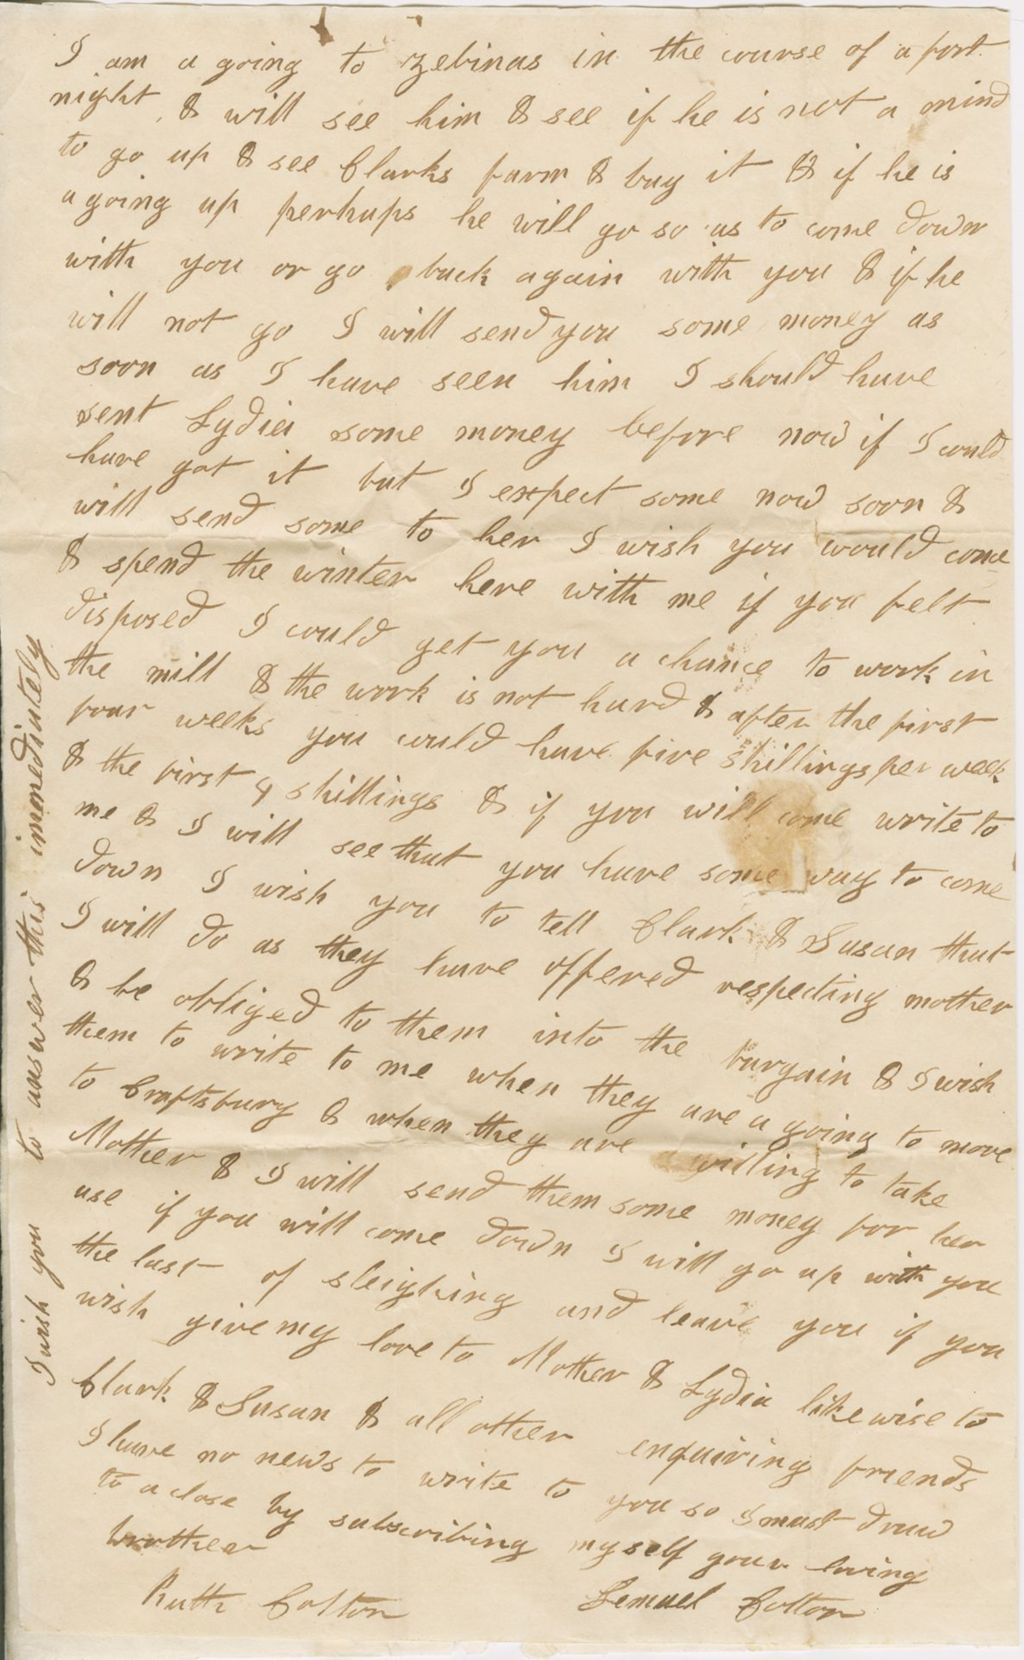 I am a going to Zebinas in the course of a fort
night & will see him & see if he is not a mind
to go up & see Clarks farm & buy it & if he is
agoing up perhaps he will go so as to come down
with you or go back again with you & if he
will not go I will send you some money as
soon as I have seen him I should have
sent Lydia some money before now if I could
have got it but I expect some now soon &
will send some to her I wish you would come
& spend the winter here with me if you felt
disposed I could get you a chance to work in
the mill & the work is not hard & after the first
four weeks you could have five shillings per week
& the first 4 shillings & if you will come write to
me & I will see that you have some way to come
down I wish you to tell Clark & Susan that
I will do as they have offered respecting mother
& be obliged to them into the bargain & I wish
them to write to me when they are a going to move
to Craftsbury & when they are willing to take
Mother & I will send them some money for her
use if you will come down I will go up with you
the last of sleighing and leave you if you
wish give my love to Mother & Lydia likewise to
Clark & Susan & all other enquiring friends
I have no news to write to you so I must draw
to a close by subscribing myself your loving
brother
Ruth Colton Lemuel Colton
I wish you to answer this immediately